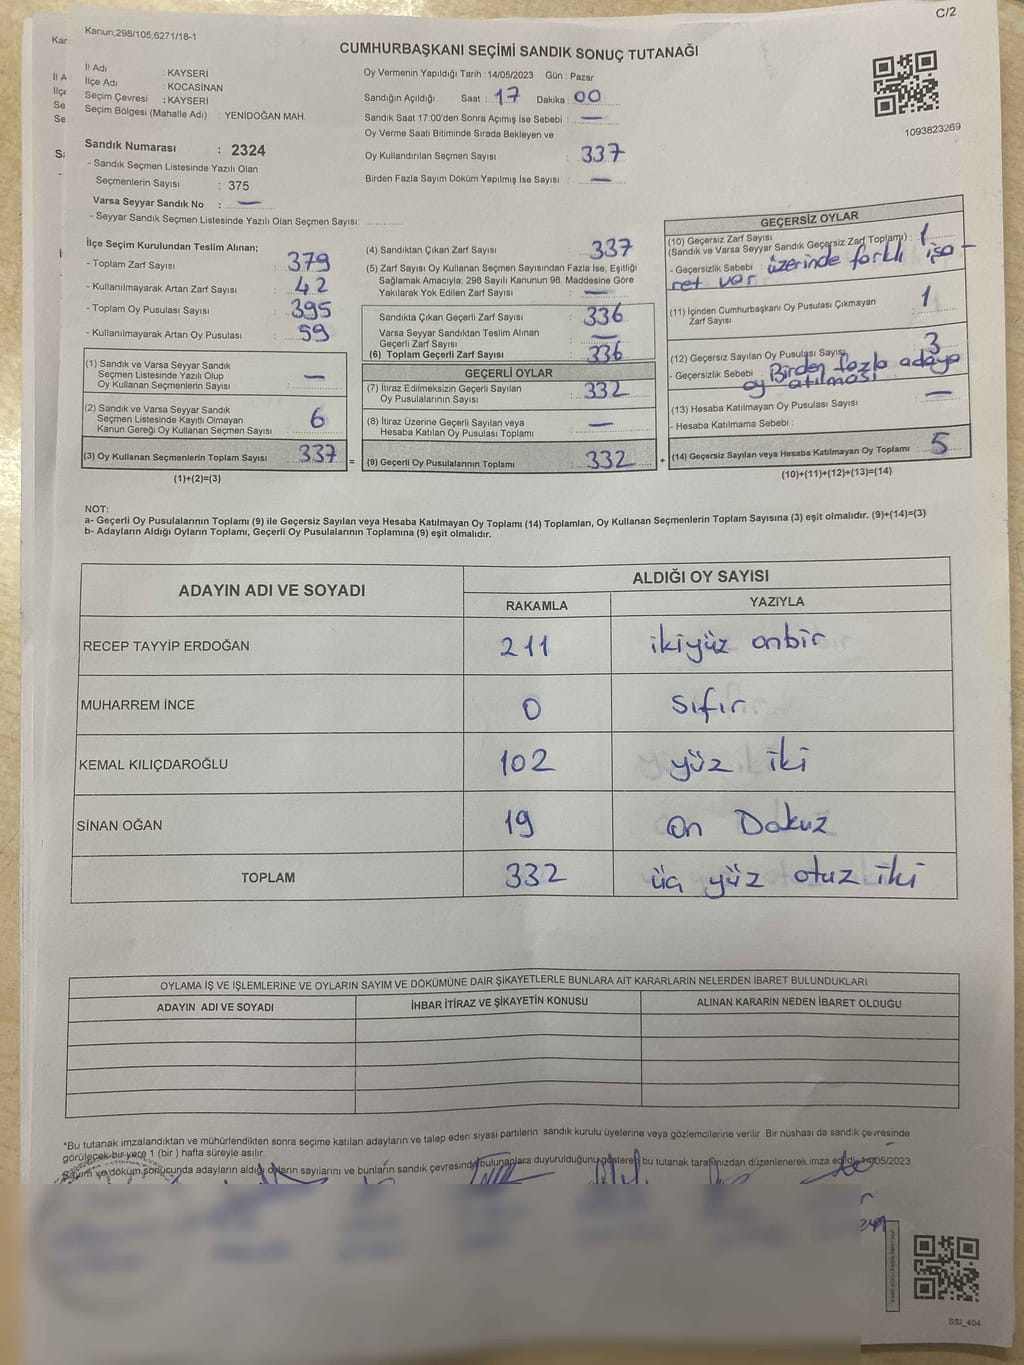 C/2
Kanun;298/105;6271/18-1
CUMHURBAŞKANI SEÇİMİ SANDIK SONUÇ TUTANAĞI
İl Adı : KAYSERİ
İlçe Adı : KOCASİNAN
Seçim Çevresi : KAYSERİ
Seçim Bölgesi (Mahalle Adı) : YENİDOĞAN MAH.
Sandık Numarası : 2324
- Sandık Seçmen Listesinde Yazılı Olan
Seçmenlerin Sayısı : 375
Varsa Seyyar Sandık No : —
- Seyyar Sandık Seçmen Listesinde Yazılı Olan Seçmen Sayısı:
Oy Vermenin Yapıldığı Tarih :14/05/2023 Gün : Pazar
Sandığın Açıldığı Saat : 17 Dakika : 00
Sandık Saat 17:00'den Sonra Açılmış İse Sebebi : —
Oy Verme Saati Bitiminde Sırada Bekleyen ve
Oy Kullandırılan Seçmen Sayısı : 337
Birden Fazla Sayım Döküm Yapılmış İse Sayısı : —
1093823269
İlçe Seçim Kurulundan Teslim Alınan;
- Toplam Zarf Sayısı : 379
- Kullanılmayarak Artan Zarf Sayısı : 42
- Toplam Oy Pusulası Sayısı : 395
- Kullanılmayarak Artan Oy Pusulası : 59
(1) Sandık ve Varsa Seyyar Sandık
Seçmen Listesinde Yazılı Olup
Oy Kullanan Seçmenlerin Sayısı : —
(2) Sandık ve Varsa Seyyar Sandık
Seçmen Listesinde Kayıtlı Olmayan
Kanun Gereği Oy Kullanan Seçmen Sayısı : 6
(3) Oy Kullanan Seçmenlerin Toplam Sayısı : 337
(1)+(2)=(3)
=
(4) Sandıktan Çıkan Zarf Sayısı : 337
(5) Zarf Sayısı Oy Kullanan Seçmen Sayısından Fazla İse, Eşitliği
Sağlamak Amacıyla; 298 Sayılı Kanunun 98. Maddesine Göre
Yakılarak Yok Edilen Zarf Sayısı : —
Sandıkta Çıkan Geçerli Zarf Sayısı : 336
Varsa Seyyar Sandıktan Teslim Alınan
Geçerli Zarf Sayısı : —
(6) Toplam Geçerli Zarf Sayısı : 336
GEÇERLİ OYLAR
(7) İtiraz Edilmeksizin Geçerli Sayılan
Oy Pusulalarının Sayısı : 332
(8) İtiraz Üzerine Geçerli Sayılan veya
Hesaba Katılan Oy Pusulası Toplamı : —
(9) Geçerli Oy Pusulalarının Toplamı : 332
+
GEÇERSİZ OYLAR
(10) Geçersiz Zarf Sayısı
(Sandık ve Varsa Seyyar Sandık Geçersiz Zarf Toplamı) : 1
- Geçersizlik Sebebi : üzerinde farklı işa-
ret var
(11) İçinden Cumhurbaşkanı Oy Pusulası Çıkmayan
Zarf Sayısı : 1
(12) Geçersiz Sayılan Oy Pusulası Sayısı : 3
- Geçersizlik Sebebi : Birden fazla adaya
oy atılması
(13) Hesaba Katılmayan Oy Pusulası Sayısı : —
- Hesaba Katılmama Sebebi :
(14) Geçersiz Sayılan veya Hesaba Katılmayan Oy Toplamı : 5
(10)+(11)+(12)+(13)=(14)
NOT:
a- Geçerli Oy Pusulalarının Toplamı (9) ile Geçersiz Sayılan veya Hesaba Katılmayan Oy Toplamı (14) Toplamları, Oy Kullanan Seçmenlerin Toplam Sayısına (3) eşit olmalıdır. (9)+(14)=(3)
b- Adayların Aldığı Oyların Toplamı, Geçerli Oy Pusulalarının Toplamına (9) eşit olmalıdır.
ADAYIN ADI VE SOYADI ALDIĞI OY SAYISI
RAKAMLA YAZIYLA
RECEP TAYYİP ERDOĞAN 211 ikiyüz onbir
MUHARREM İNCE 0 Sıfır
KEMAL KILIÇDAROĞLU 102 yüz iki
SİNAN OĞAN 19 on Dokuz
TOPLAM 332 üç yüz otuz iki
OYLAMA İŞ VE İŞLEMLERİNE VE OYLARIN SAYIM VE DÖKÜMÜNE DAİR ŞİKAYETLERLE BUNLARA AİT KARARLARIN NELERDEN İBARET BULUNDUKLARI
ADAYIN ADI VE SOYADI İHBAR İTİRAZ VE ŞİKAYETİN KONUSU ALINAN KARARIN NEDEN İBARET OLDUĞU
*Bu tutanak imzalandıktan ve mühürlendikten sonra seçime katılan adayların ve talep eden siyasi partilerin sandık kurulu üyelerine veya gözlemcilerine verilir. Bir nüshası da sandık çevresinde
görülecek bir yere 1 (bir ) hafta süreyle asılır.
Sayım ve döküm sonucunda adayların aldığı oyların sayılarını ve bunların sandık çevresinde bulunanlara duyurulduğunu gösterir bu tutanak tarafımızdan düzenlenerek imza edildi. 14/05/2023
SSİ_404